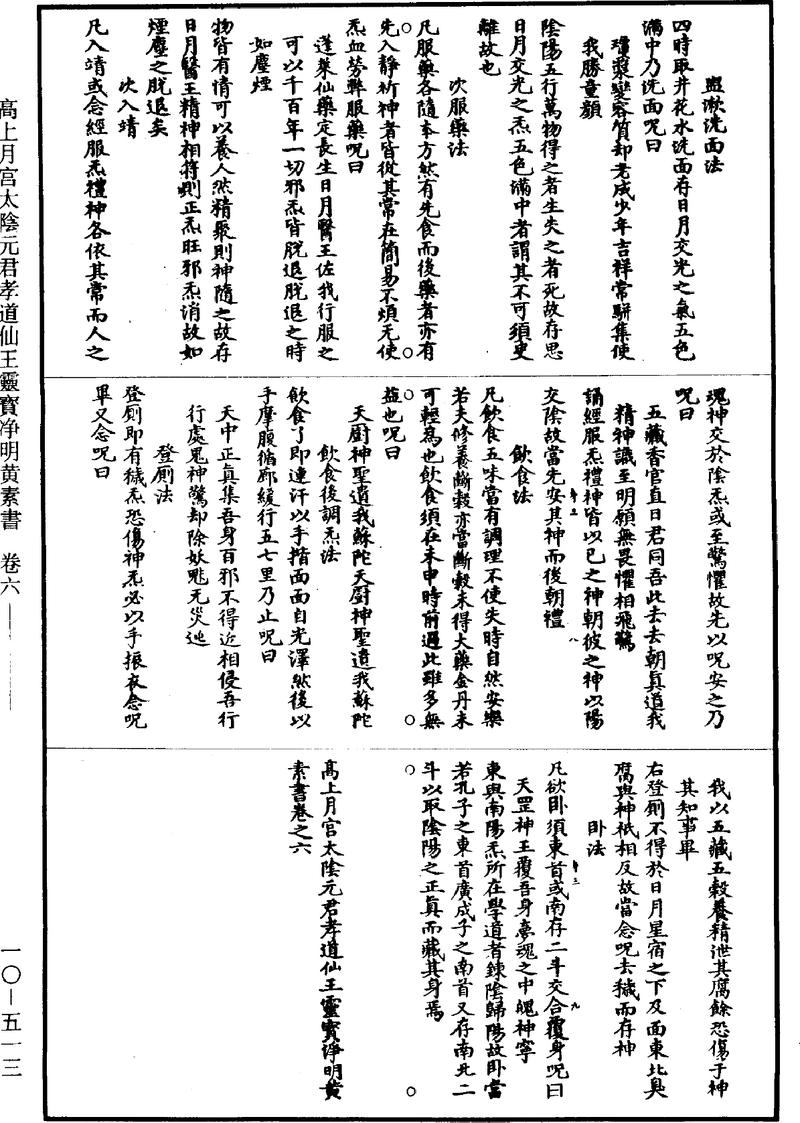 盥漱洗面法
四時取井花水洗面存日月交光之氣五色
滿中乃洗面呪曰
瓊漿變容質却老成少年吉祥常駢集使
我勝童顏
陰陽五行萬物得之者生失之者死故存思
日月交光之炁五色滿中者謂其不可須臾
離故也
次服藥法
凡服藥各隨本方然有先食而後藥者亦有
先入靜祈神者皆從其常在簡易不煩无使
炁血勞弊服藥呪曰
蓬萊仙藥定長生日月醫王佐我行服之
可以千百年一切邪炁皆脫退脫退之時
如塵煙
物皆有情可以養人然精聚則神隨之故存
日月醫王精神相符則正炁旺邪炁消故如
煙塵之脫退矣
次入靖
凡入靖或念經服炁禮神各依其常而人之
魂神交於陰炁或至驚懼故先以呪安之乃
呪曰
五藏香官直日君同吾此去去朝真道我
精神識至明願無畏懼相飛驚
誦經服炁禮神皆以已之神朝彼之神以陽
交陰故當先安其神而後朝禮
飲食法
凡飲食五味當有調理不使失時自然安樂
若夫修養斷穀亦當斷穀未得大藥金丹未
可輕爲也飲食須在未申時前過此雖多無
益也呪曰
天厨神聖遺我蘇陀天厨神聖遺我蘇陀
飲食後調炁法
飲食了即連汗以手揩面面自光澤然後以
手摩腹循廊緩行五七里乃止呪曰
天中正真集吾身百邪不得近相侵吾行
行處鬼神驚却除妖魁无災迍
登厠法
登厠即有穢炁恐傷神炁必以手振衣念呪
畢又念呪曰
我以五藏五穀養精泄其腐餘恐傷于神
其知事畢
右登厠不得於日月星宿之下及面東北臭
腐與神祇相反故當念呪去穢而存神
卧法
凡欲卧須東首或南存二斗交合覆身呪曰
天罡神王覆吾身夢魂之中魄神寧
東與南陽炁所在學道者鍊陰歸陽故卧當
若孔子之東首廣成子之南首又存南北二
斗以取陰陽之正真而藏其身焉
高上月宫太陰元君孝道仙王靈寳淨明黄
素書卷之六
高上月宫太陰元君孝道仙王靈寳净明黄素書 卷六
一〇—五一三